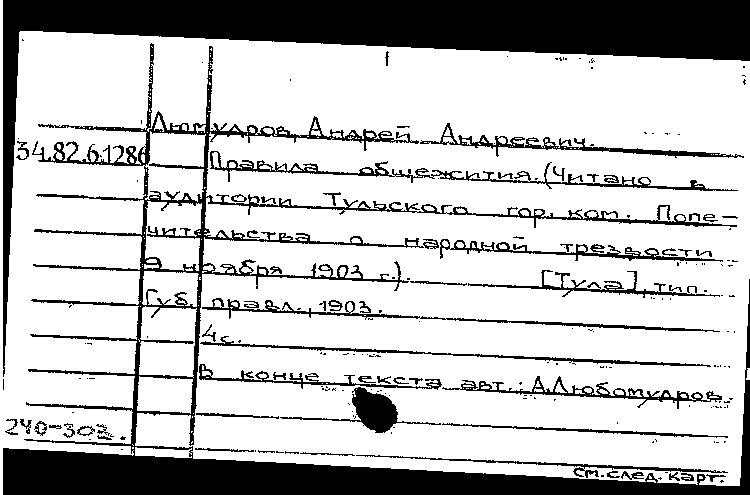 Люмудров, Андрей Андреевич.
34.82.6.1286 Правила общежития. (Читано в
аудитории Тульского гор. ком. Попе-
чительства о народной трезвости
9 ноября 1903 г.). [Тула], тип.
Губ. правл., 1903.
4с.
В конце текста авт.: А.Любомудров.
240-303.
см. след. карт.